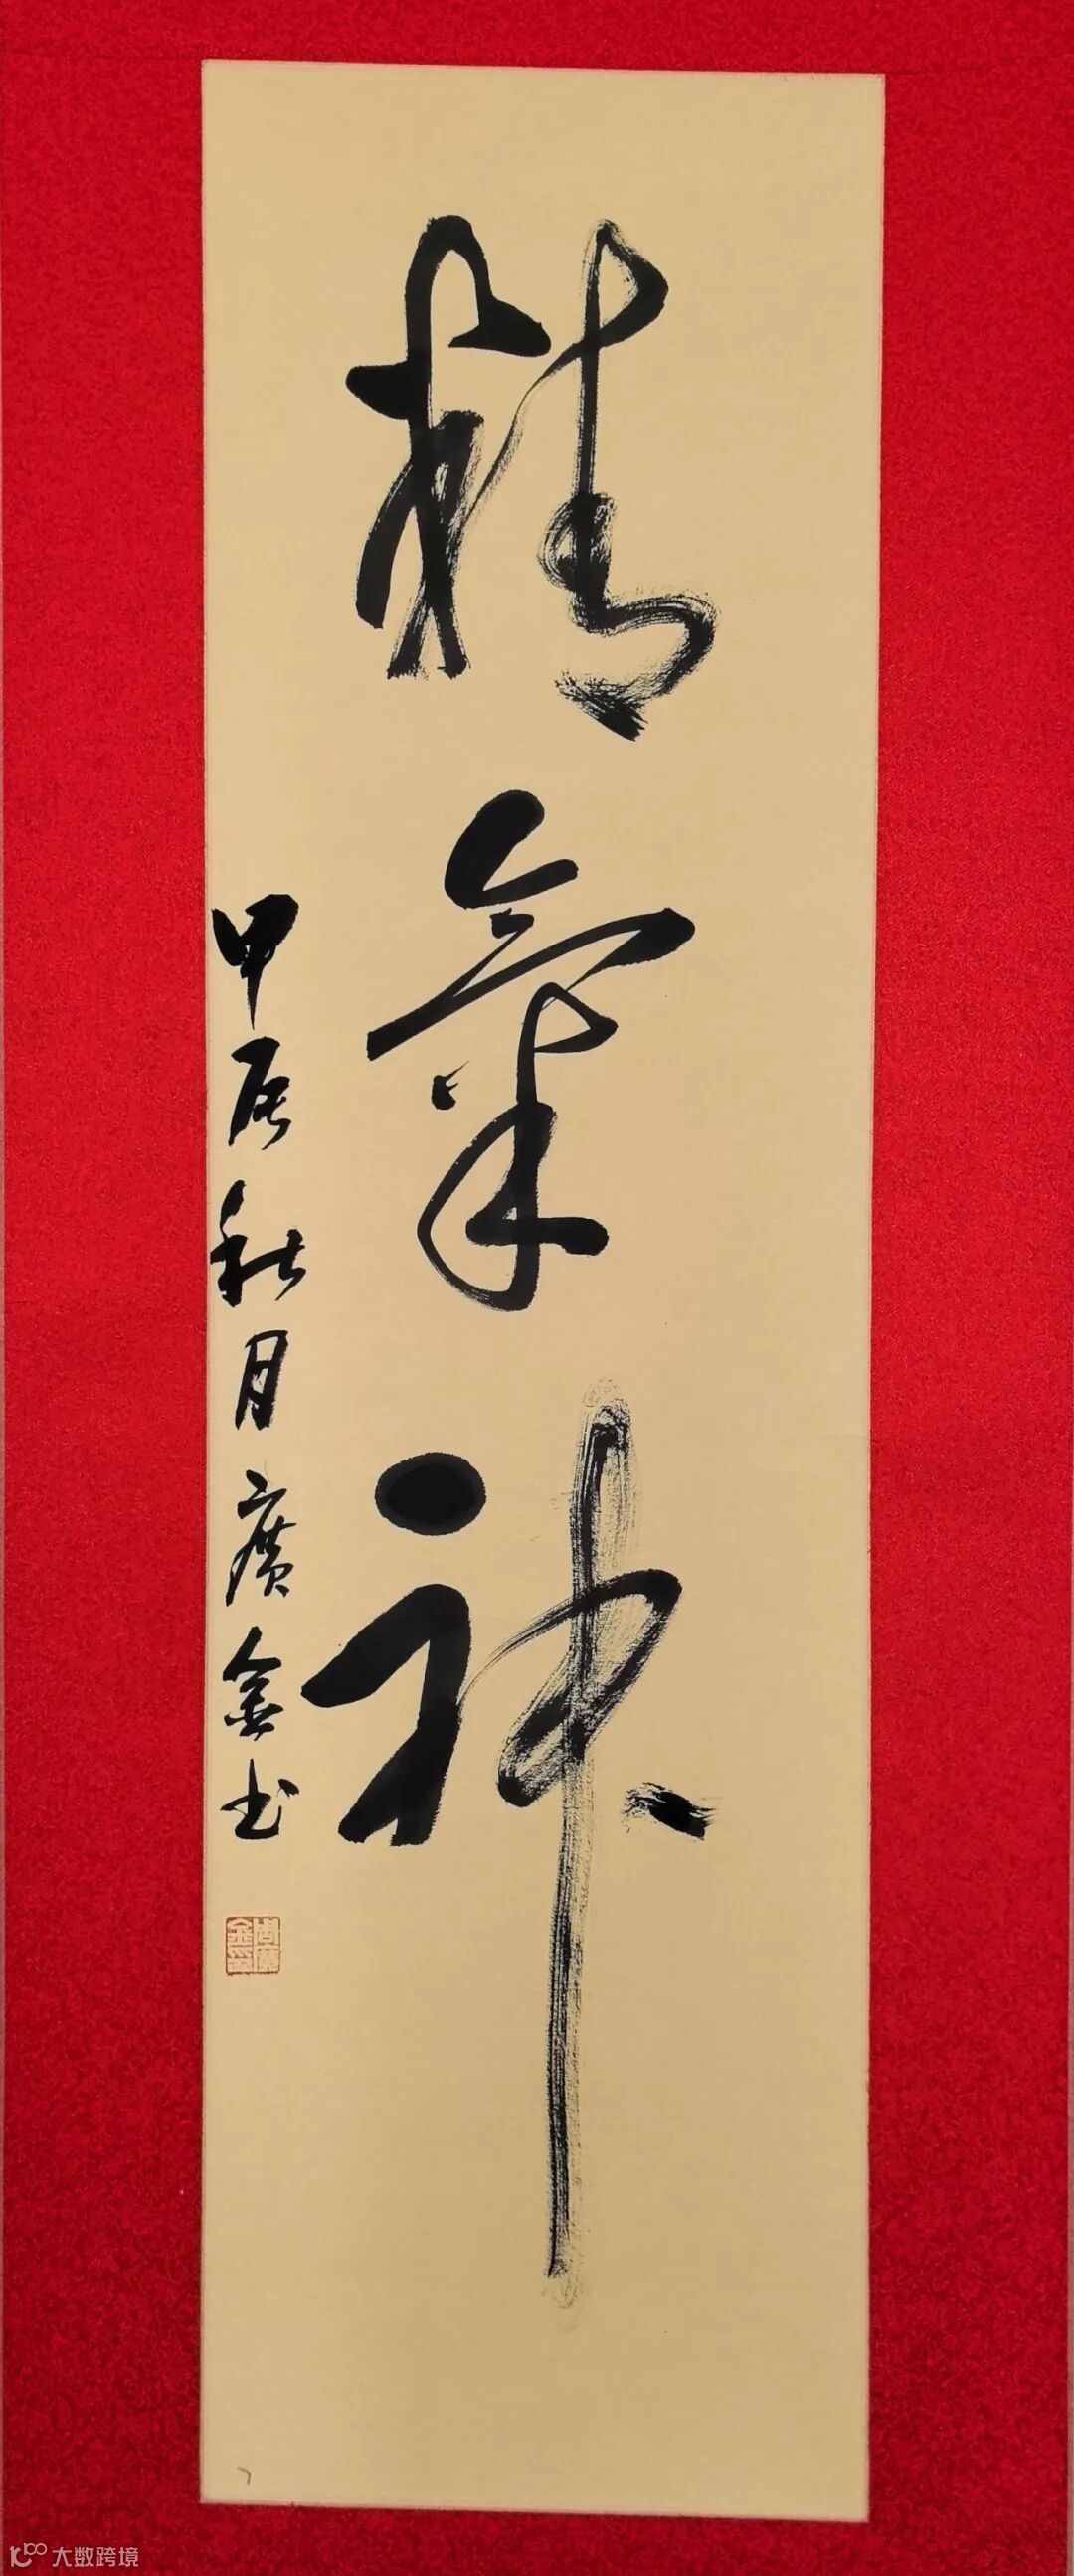 精氣神
甲辰秋月廣金书
周廣金印
大数跨境